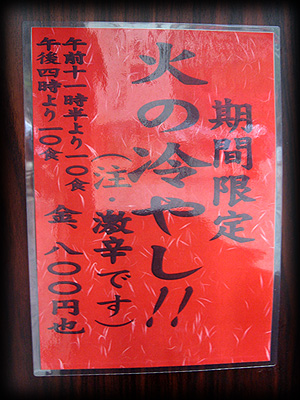 期間限定
火の冷やし!!
(注・激辛です)
金、八〇〇円也
午前十一時半より一〇食
午後四時より一〇食